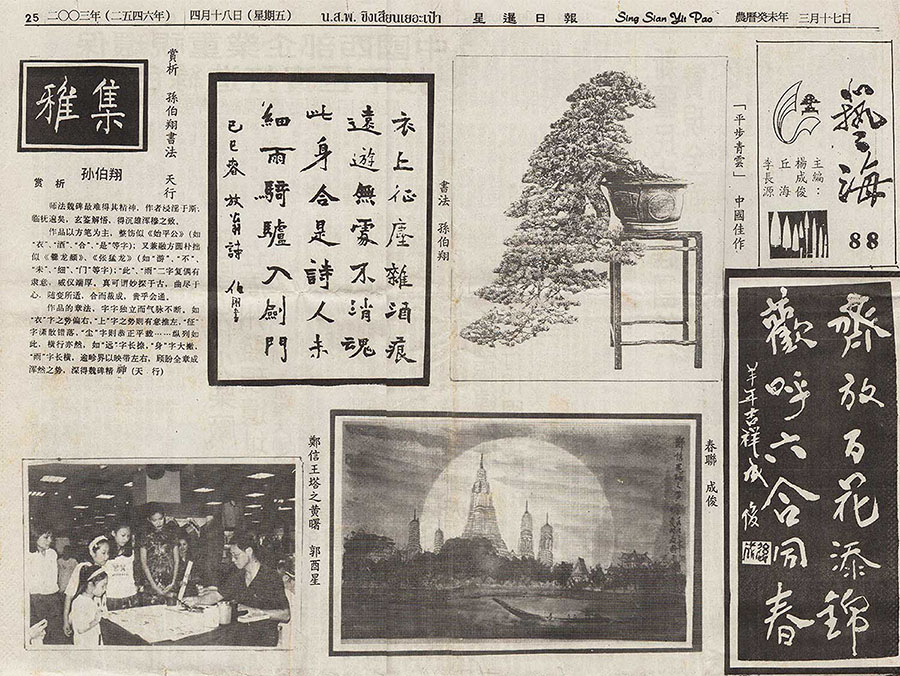 25 二〇〇三年（二五四六年） 四月十八日（星期五） น.ส.พ. ซิงเสียนเยอะเป้า 星暹日報 Sing Sian Yit Pao 農曆癸未年 三月十七日
藝海
88
主編：
楊成俊
丘海
李長源
「平步青雲」 中國佳作
書法 孫伯翔
衣上征塵雜酒痕
遠遊無處不消魂
此身合是詩人未
細雨騎驢入劍門
己巳春 放翁詩 伯翔書
賞析 孫伯翔書法 天行
雅集
孙伯翔
賞析
师法魏碑最难得其精神，作者浸淫于斯，
临抚遍矣，玄鉴解悟，得沉雄浑穆之致。
作品以方笔为主，整饬似《始平公》（如
“衣”、“酒”、“合”、“是”等字）；又兼融方圆朴拙
似《爨龙颜》、《张猛龙》（如“游”、“不”、
“未”、“细”、“门”等字）；“此”、“雨”二字复偶有
隶意，威仪端厚，真可谓妙探于古，曲尽于
心，随变所适，合而裁成，贵乎会通。
作品的章法，字字独立而气脉不断，如
“衣”字之势偏右，“上”字之势则有意推左，“征”
字潇散错落，“尘”字则恭正平载……纵列如
此，横行亦然，如“远”字长捺，“身”字大撇，
“雨”字长横，逾畛界以映带左右，顾盼全章成
浑然之势，深得魏碑精神（天行）
齊放百花添錦
歡呼六合同春
羊年吉祥 成俊
春聯 成俊
鄭信王塔之黃曙 郭酉星